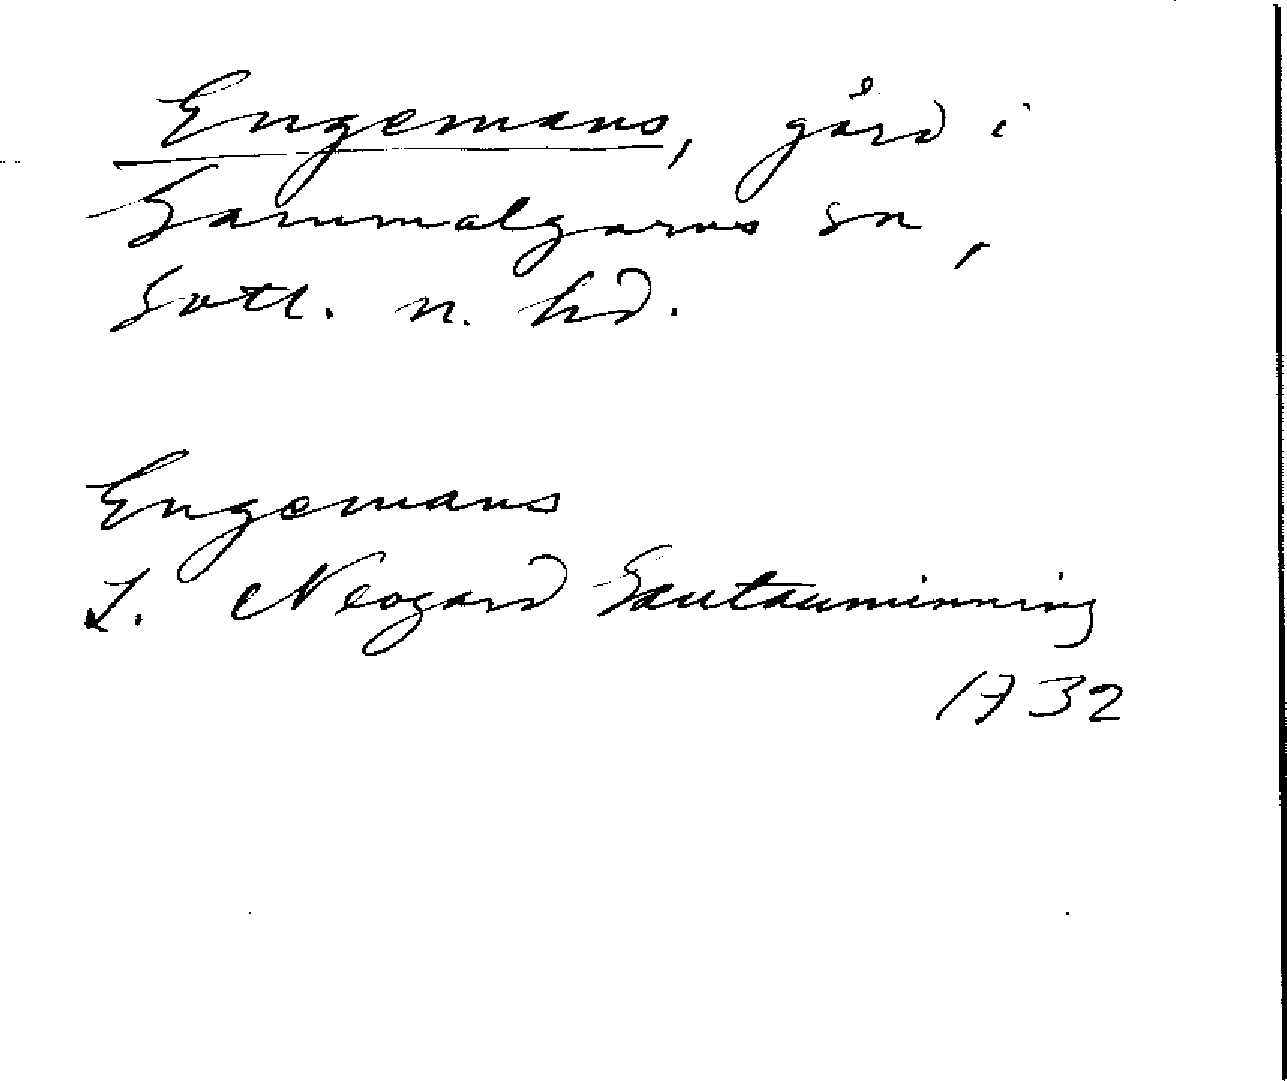 Engemans, gård i
Gammalgarns sn,
Gotl. n. hd.
Engemans
J. Neogard Gautauminning
1732